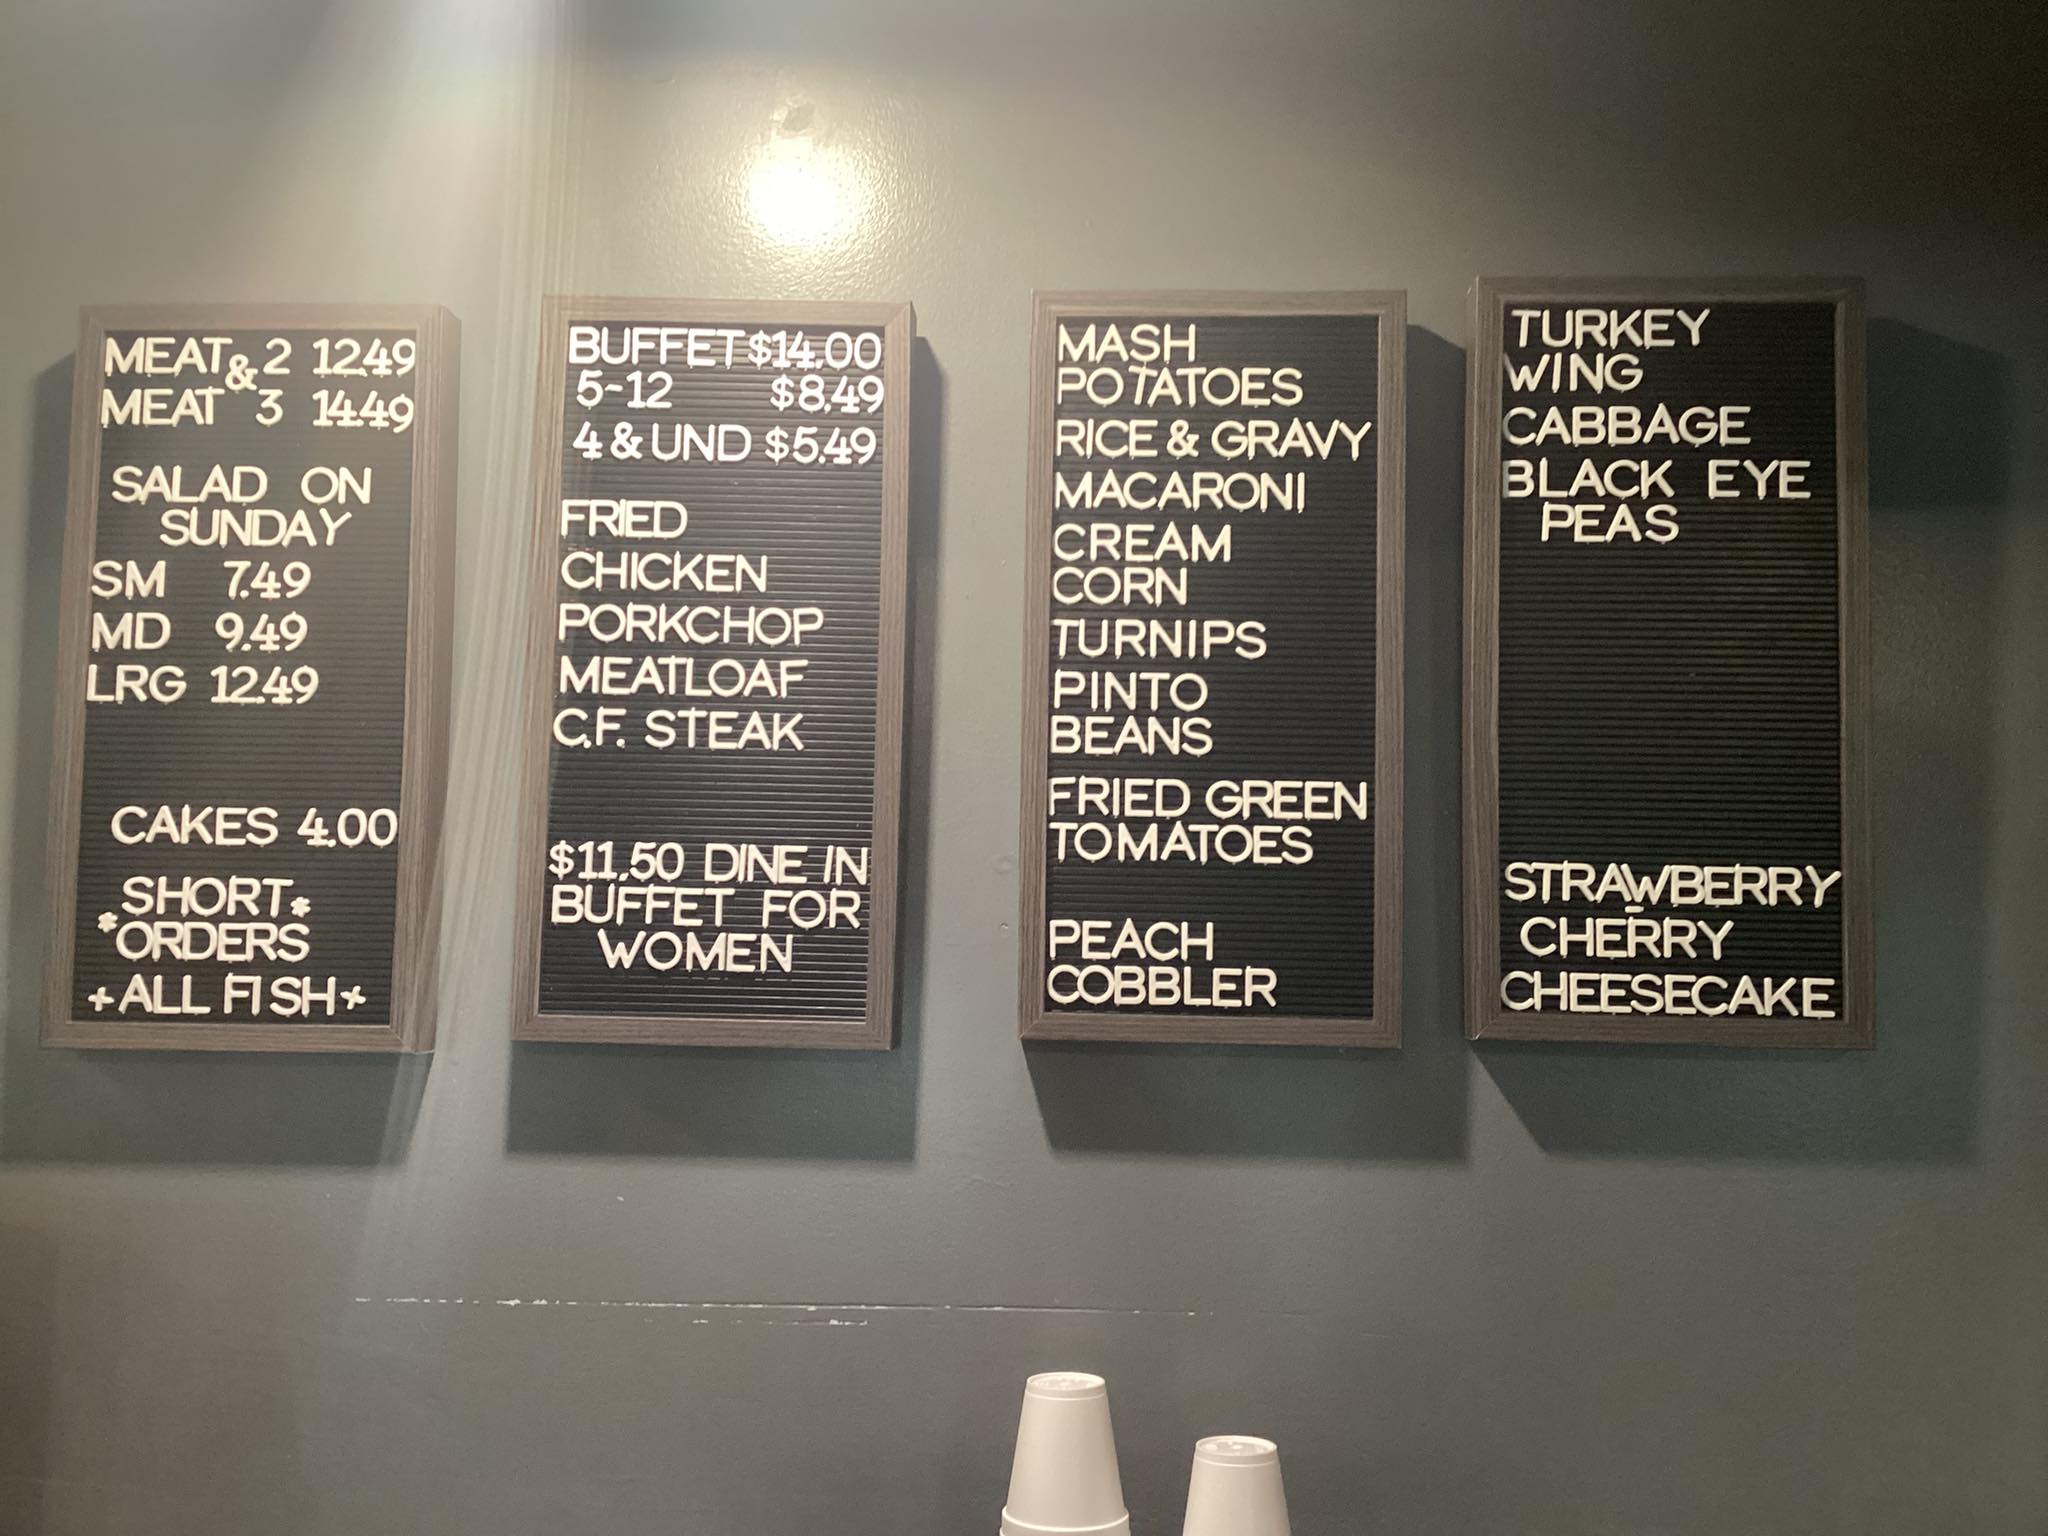 MEAT & 2 12.49
MEAT 3 14.49
SALAD ON
SUNDAY
SM 7.49
MD 9.49
LRG 12.49
CAKES 4.00
SHORT*
*ORDERS
+ALL FISH+
BUFFET $14.00
5-12 $8.49
4 & UND $5.49
FRIED
CHICKEN
PORKCHOP
MEATLOAF
C.F. STEAK
$11.50 DINE IN
BUFFET FOR
WOMEN
MASH
POTATOES
RICE & GRAVY
MACARONI
CREAM
CORN
TURNIPS
PINTO
BEANS
FRIED GREEN
TOMATOES
PEACH
COBBLER
TURKEY
WING
CABBAGE
BLACK EYE
PEAS
STRAWBERRY
CHERRY
CHEESECAKE